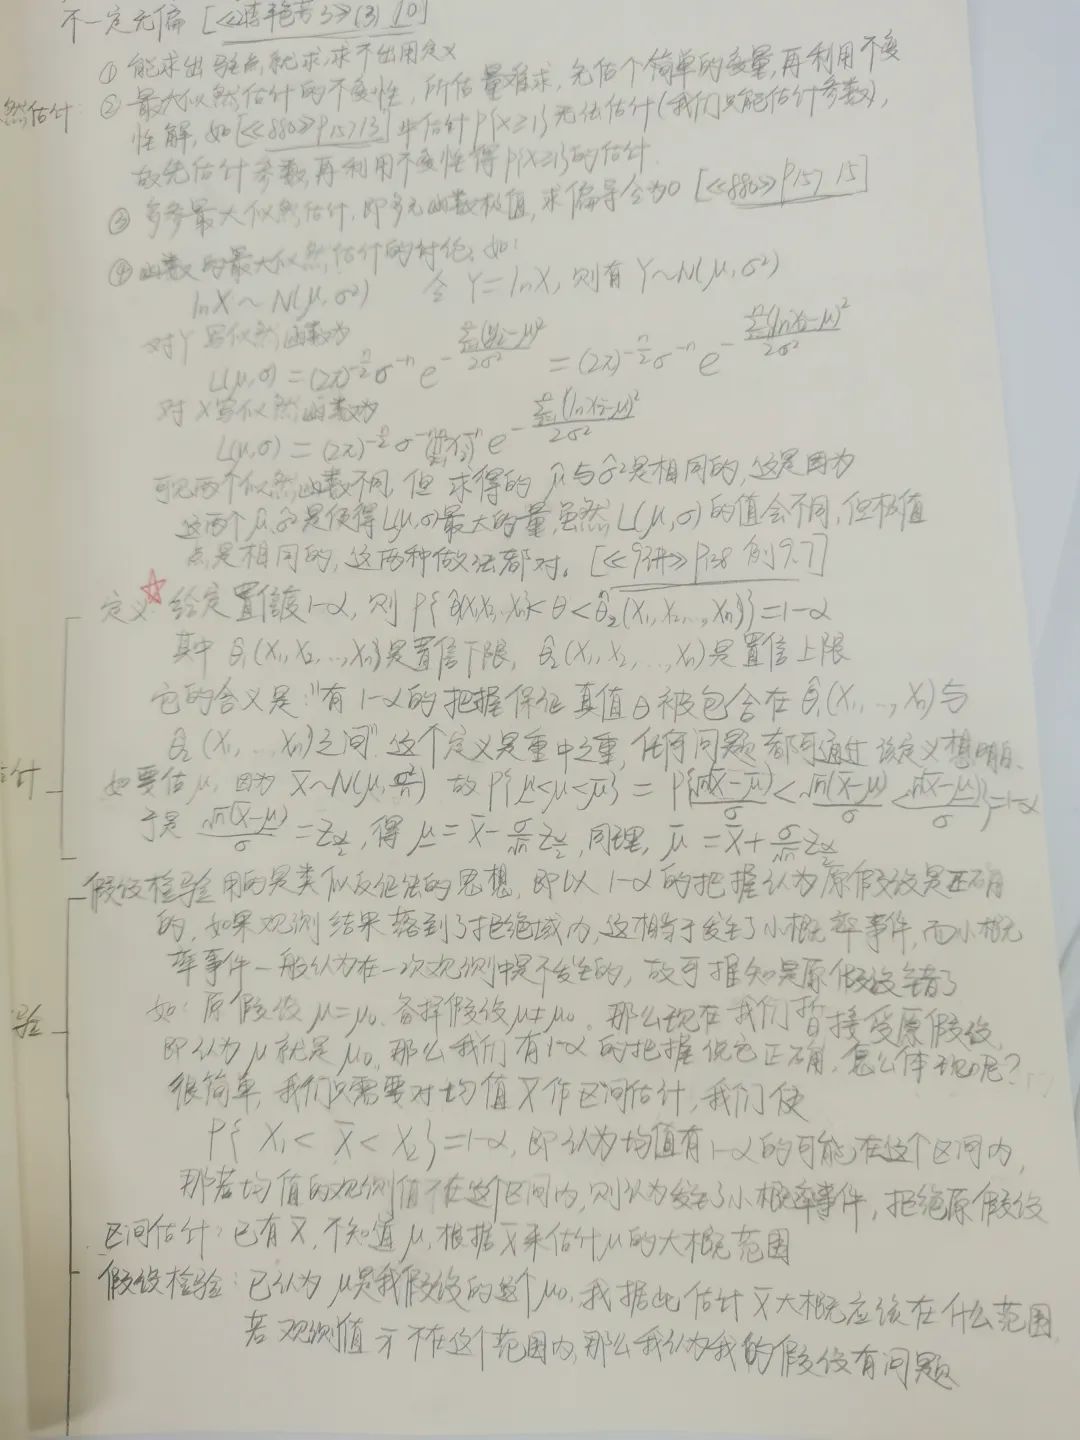 不一定无偏 [《李艳芳3》(3) 10]
① 能求出驻点,就求,求不出用定义
然估计
② 最大似然估计的不变性,所估量难求,先估个简单的变量,再利用不变
性解,如[《880》P157 13]中估计P{X≥1}无法估计(我们只能估计参数),
故先估计参数,再利用不变性得P{X≥1}的估计.
③ 多参最大似然估计,即多元函数极值,求偏导令为0 [《880》P157 15]
④ 函数的最大似然估计的讨论,如:
lnX~N(μ,σ²) 令 Y=lnX, 则有 Y~N(μ,σ²)
对Y写似然函数为
L(μ,σ) = (2π)^{-n/2} σ^{-n} e^{-\frac{\sum_{i=1}^{n}(y_i-μ)^2}{2σ^2}} = (2π)^{-n/2} σ^{-n} e^{-\frac{\sum_{i=1}^{n}(lnx_i-μ)^2}{2σ^2}}
对X写似然函数为
L(μ,σ) = (2π)^{-n/2} σ^{-n} e^{-\frac{\sum_{i=1}^{n}(lnx_i-μ)^2}{2σ^2}}
可见两个似然函数不同,但求得的 μ̂ 与 σ̂² 是相同的,这是因为
这两个μ̂,σ̂²是使得L(μ,σ)最大的量,虽然L(μ,σ)的值会不同,但极值
点是相同的,这两种做法都对。[《9讲》P138 例9.7]
定义☆ 给定置信度1-α, 则 P{θ̂₁(X₁,X₂,…,Xₙ)<θ<θ̂₂(X₁,X₂,…,Xₙ)}=1-α
其中 θ̂₁(X₁,X₂,…,Xₙ)是置信下限, θ̂₂(X₁,X₂,…,Xₙ)是置信上限
它的含义是:"有1-α的把握保证真值θ被包含在θ̂₁(X₁,…,Xₙ)与
θ̂₂(X₁,…,Xₙ)之间".这个定义是重中之重,任何问题都可通过该定义想明白.
估计
如要估μ, 因为 X̄~N(μ,σ²/n) 故P{μ̲<μ<μ̄} = P{√n(X̄-μ̄)/σ < √n(X̄-μ)/σ < √n(X̄-μ̲)/σ}=1-α
于是 √n(X̄-μ̲)/σ = Z_{α/2}, 得 μ̲ = X̄ - σ/√n Z_{α/2}, 同理, μ̄ = X̄ + σ/√n Z_{α/2}
假设检验用的是类似反证法的思想,即以1-α的把握认为原假设是正确
的,如果观测结果落到了拒绝域内,这相当于发生了小概率事件,而小概
率事件一般认为在一次观测中是不发生的,故可推知是原假设错了
验
如:原假设μ=μ₀,备择假设μ≠μ₀。那么现在我们暂接受原假设,
即认为μ就是μ₀,那么我们有1-α的把握说它正确,怎么体现呢?
很简单,我们只需要对均值X̄作区间估计,我们使
P{X₁<X̄<X₂}=1-α,即认为均值有1-α的可能在这个区间内,
那若均值的观测值不在这个区间内,则认为发生了小概率事件,拒绝原假设
区间估计:已有X̄,不知道μ,根据X̄来估计μ的大概范围
假设检验:已认为μ是我假设的这个μ₀,我据此估计X̄大概应该在什么范围,
若观测值x̄不在这个范围内,那么我认为我的假设有问题